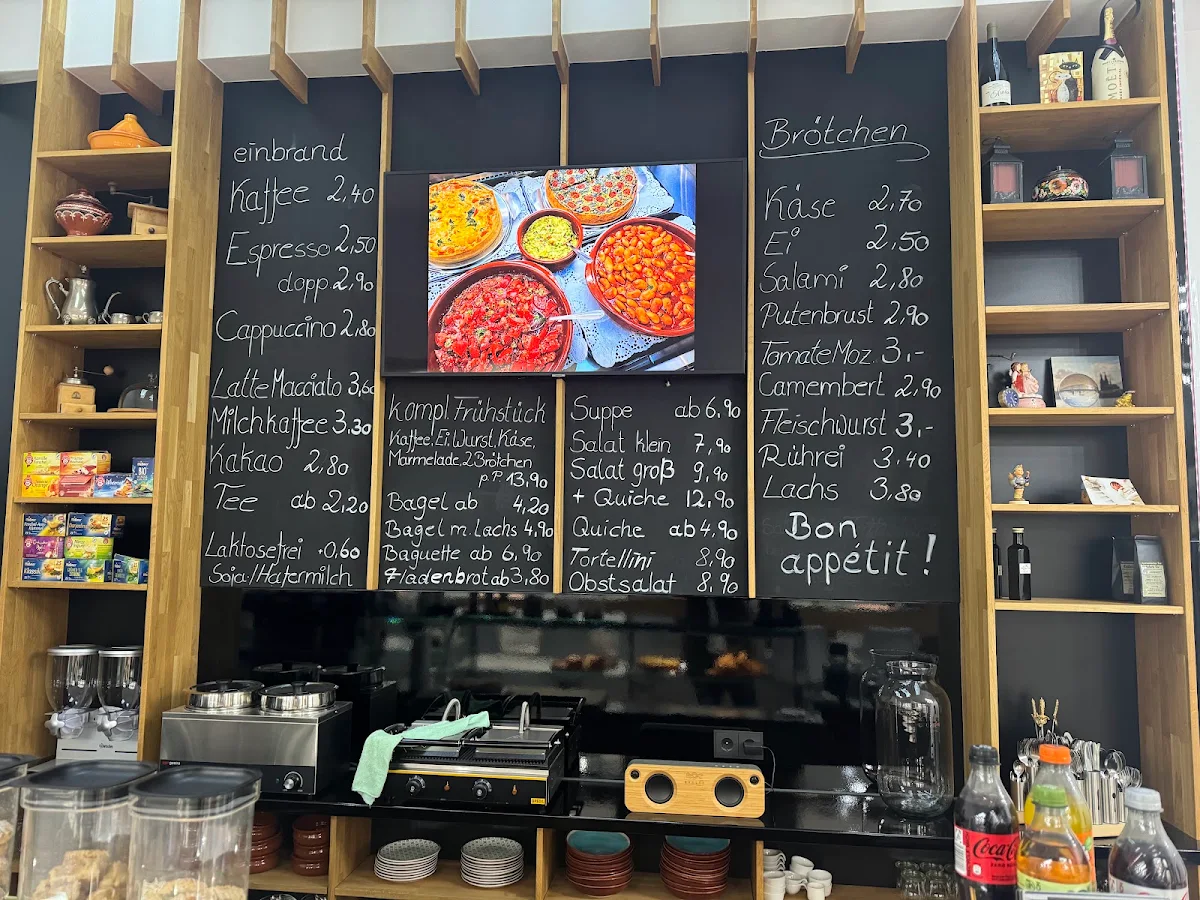 einbrand
Kaffee 2,40
Espresso 2,50
dopp. 2,90
Cappuccino 2,80
Latte Macciato 3,60
Milchkaffee 3,30
Kakao 2,80
Tee ab 2,20
Laktosefrei +0,60
Soja-/Hafermilch
kompl. Frühstück
Kaffee, Ei, Wurst, Käse,
Marmelade, 2 Brötchen
p.P. 13,90
Bagel ab 4,20
Bagel m. Lachs 4,90
Baguette ab 6,90
Fladenbrot ab 3,80
Suppe ab 6,90
Salat klein 7,90
Salat groß 9,90
+ Quiche 12,90
Quiche ab 4,90
Tortellini 8,90
Obstsalat 8,90
Brötchen
Käse 2,70
Ei 2,50
Salami 2,80
Putenbrust 2,90
Tomate Moz. 3,-
Camembert 2,90
Fleischwurst 3,-
Rührei 3,40
Lachs 3,80
Bon
appétit!
MOËT
Coca-Cola